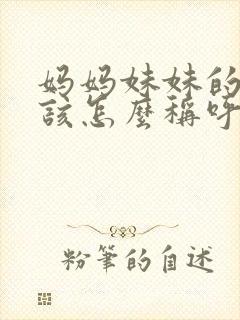 妈妈妹妹的
该怎麽稱呼
粉筆的自述